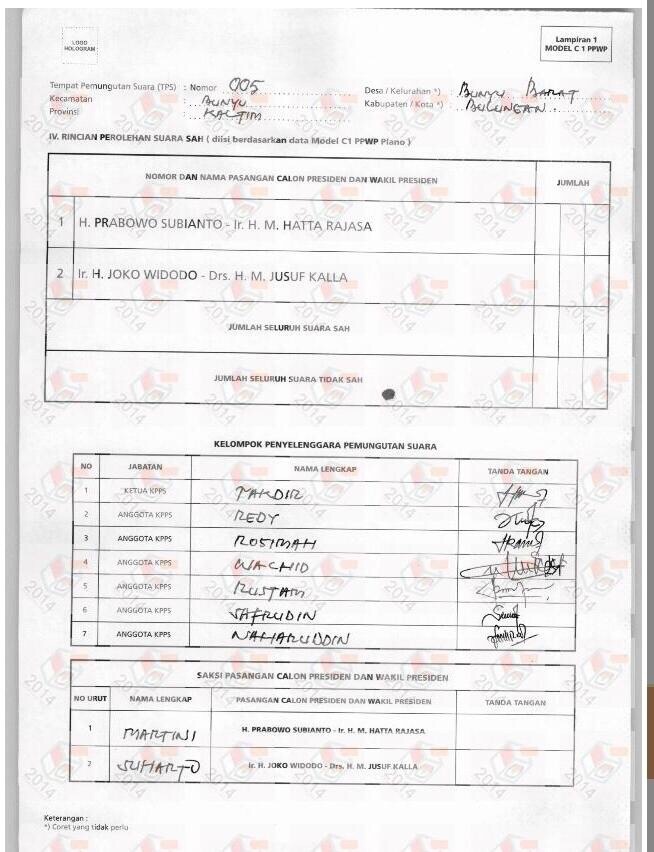 LOGO
HOLOGRAM
Lampiran 1
MODEL C 1 PPWP
Tempat Pemungutan Suara (TPS) : Nomor 005
Kecamatan : BUNYU
Provinsi : KALTIM
Desa / Kelurahan *) : BUNYU BARAT
Kabupaten / Kota *) : BULUNGAN
IV. RINCIAN PEROLEHAN SUARA SAH ( diisi berdasarkan data Model C1 PPWP Plano )
NOMOR DAN NAMA PASANGAN CALON PRESIDEN DAN WAKIL PRESIDEN JUMLAH
1 H. PRABOWO SUBIANTO - Ir. H. M. HATTA RAJASA
2 Ir. H. JOKO WIDODO - Drs. H. M. JUSUF KALLA
JUMLAH SELURUH SUARA SAH
JUMLAH SELURUH SUARA TIDAK SAH
KELOMPOK PENYELENGGARA PEMUNGUTAN SUARA
NO JABATAN NAMA LENGKAP TANDA TANGAN
1 KETUA KPPS
2 ANGGOTA KPPS REDY
3 ANGGOTA KPPS ROSIMAH
4 ANGGOTA KPPS WACHID
5 ANGGOTA KPPS RUSTAM
6 ANGGOTA KPPS SAFRUDIN
7 ANGGOTA KPPS NAHARUDDIN
SAKSI PASANGAN CALON PRESIDEN DAN WAKIL PRESIDEN
NO URUT NAMA LENGKAP PASANGAN CALON PRESIDEN DAN WAKIL PRESIDEN TANDA TANGAN
1 MARTINI H. PRABOWO SUBIANTO - Ir. H. M. HATTA RAJASA
2 SUHARTO Ir. H. JOKO WIDODO - Drs. H. M. JUSUF KALLA
Keterangan :
*) Coret yang tidak perlu